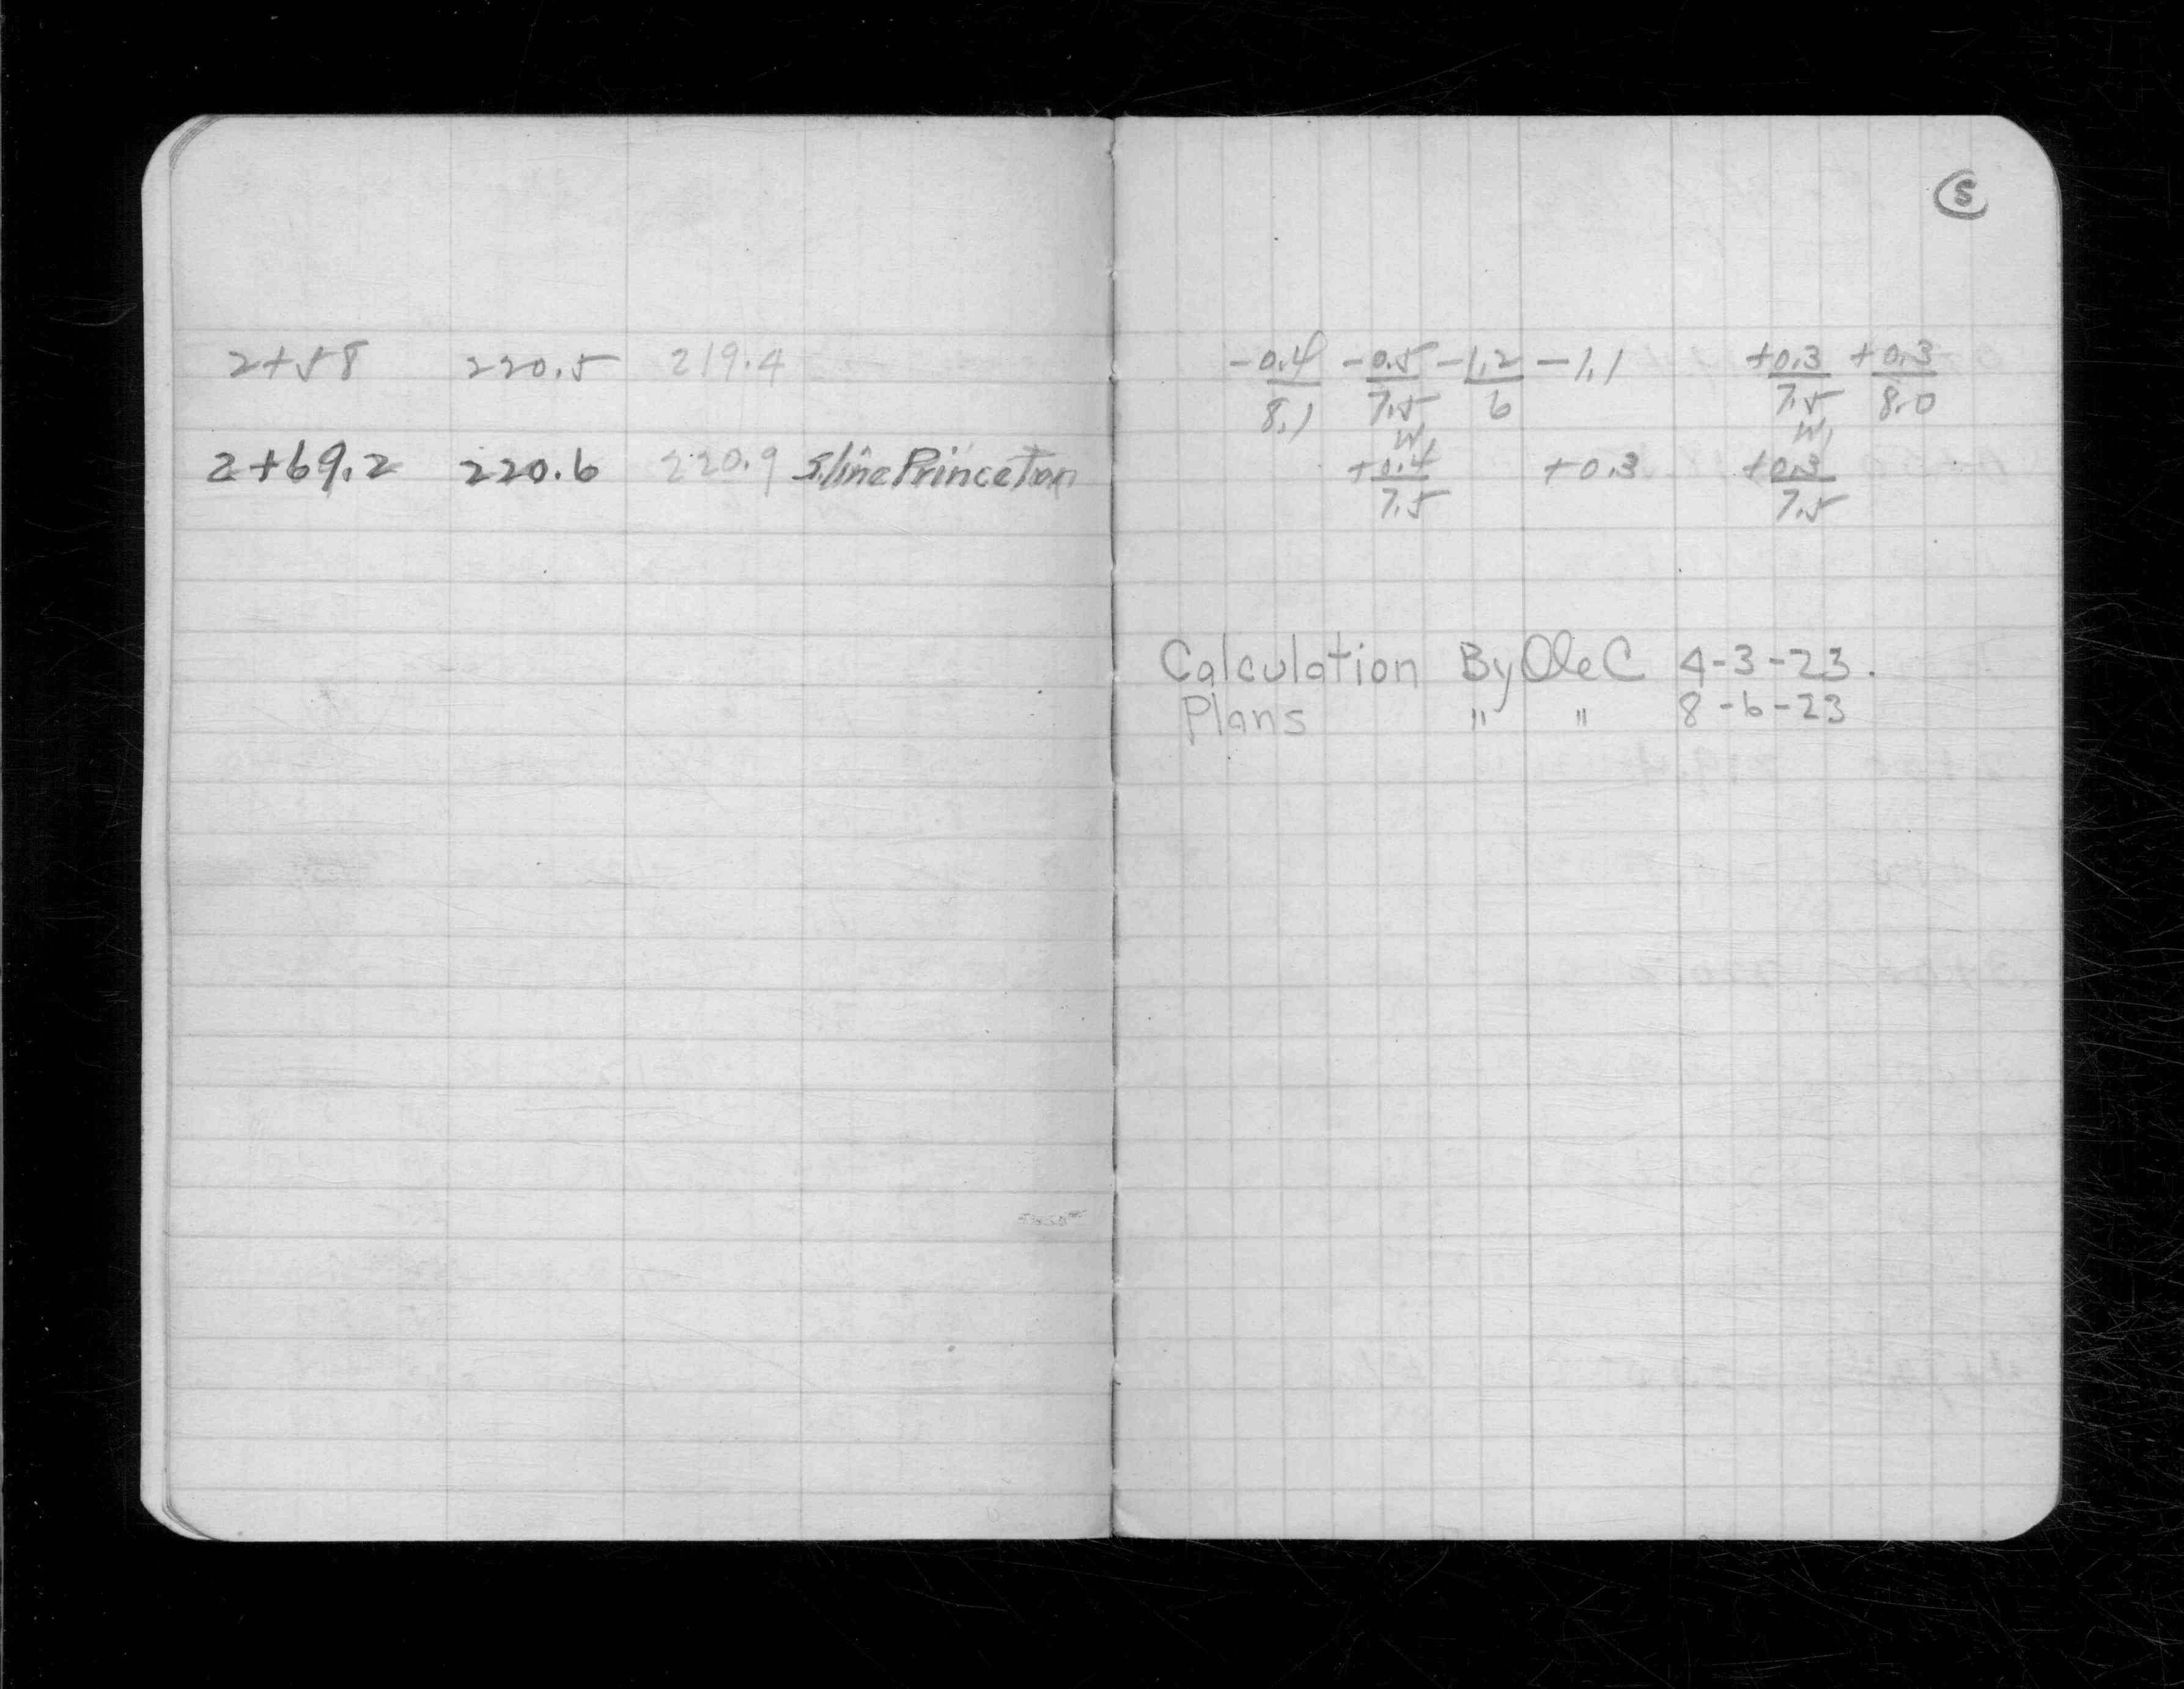 5
2+58 220.5 219.4
2+69.2 220.6 220.9 S.line Princeton
-0.4/8.1 -0.5/7.5 -1.2/6 -1.1 +0.3/7.5 +0.3/8.0
W. W.
+0.4/7.5 +0.3 +0.3/7.5
Calculation By Ole C 4-3-23.
Plans " " 8-6-23